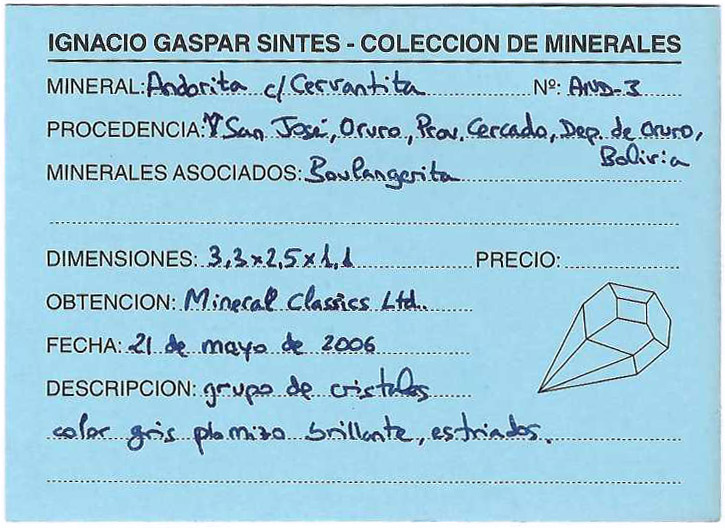 IGNACIO GASPAR SINTES - COLECCION DE MINERALES
MINERAL: Andorita c/ Cervantita Nº: AND-3
PROCEDENCIA: San José, Oruro, Prov. Cercado, Dep. de Oruro,
Bolivia
MINERALES ASOCIADOS: Boulangerita
DIMENSIONES: 3,3x2,5x1,1 PRECIO:
OBTENCION: Mineral Classics Ltd.
FECHA: 21 de mayo de 2006
DESCRIPCION: grupo de cristales
color gris plomizo brillante, estriados.